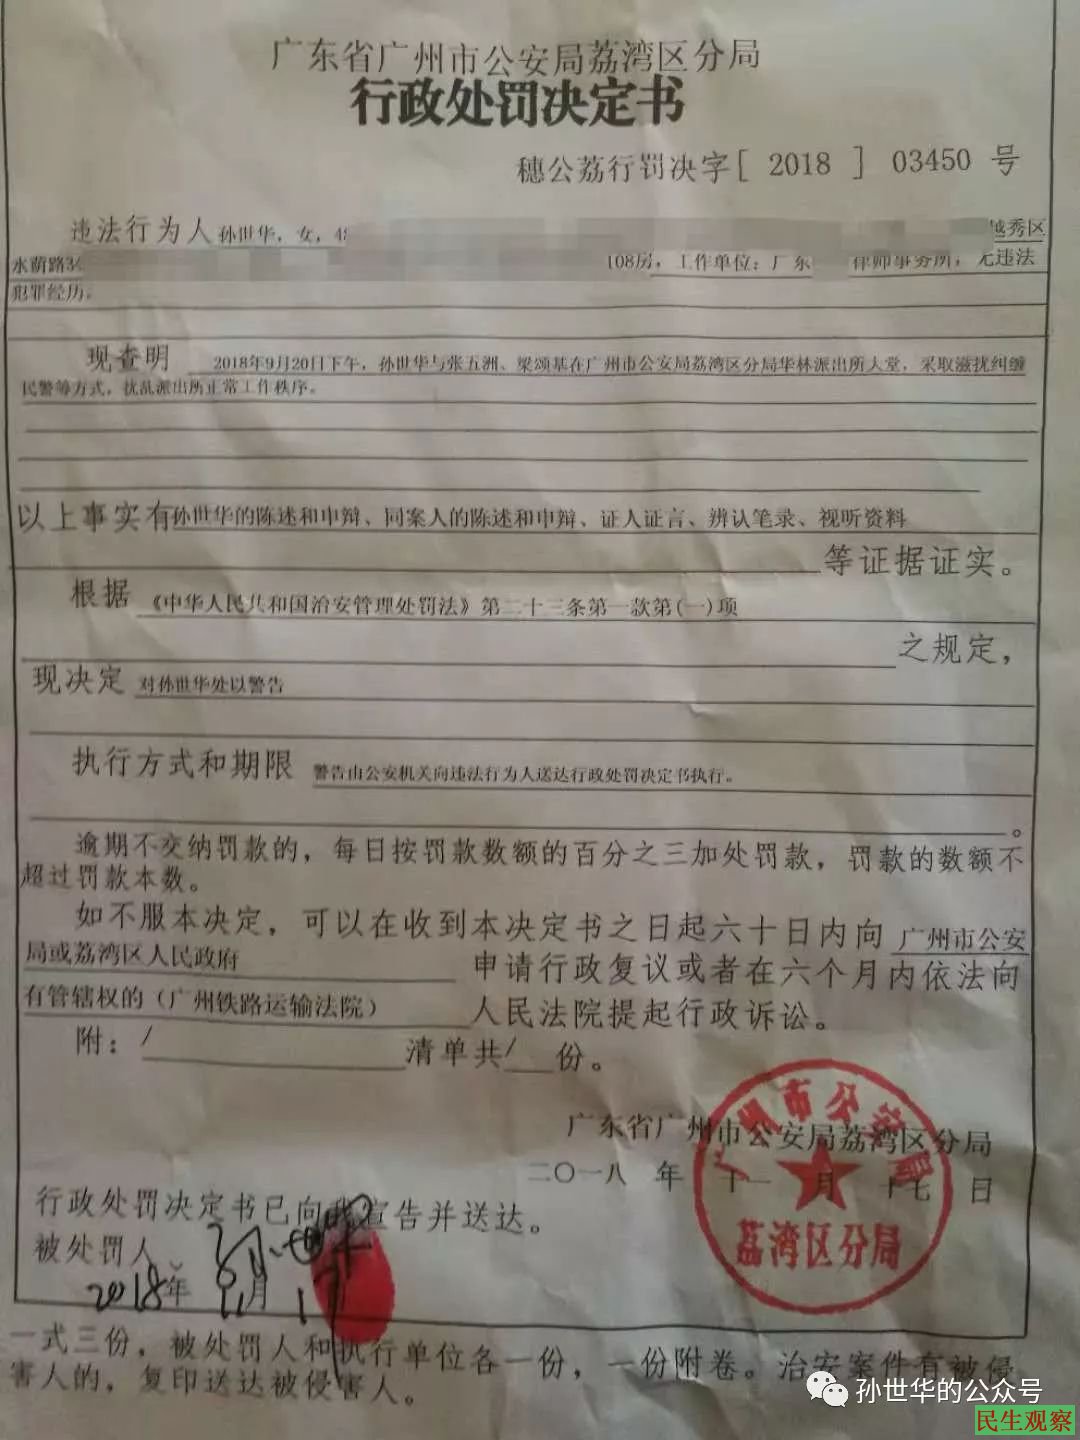 广东省广州市公安局荔湾区分局
行政处罚决定书
穗公荔行罚决字[ 2018 ] 03450 号
违法行为人 孙世华，女，48 越秀区
水荫路34 108房，工作单位：广东 律师事务所，无违法
犯罪经历。
现查明 2018年9月20日下午，孙世华与张五洲、梁颂基在广州市公安局荔湾区分局华林派出所大堂，采取滋扰纠缠
民警等方式，扰乱派出所正常工作秩序。
以上事实有孙世华的陈述和申辩、同案人的陈述和申辩、证人证言、辨认笔录、视听资料
等证据证实。
根据 《中华人民共和国治安管理处罚法》第二十三条第一款第(一)项
之规定，
现决定 对孙世华处以警告
执行方式和期限 警告由公安机关向违法行为人送达行政处罚决定书执行。
。
逾期不交纳罚款的，每日按罚款数额的百分之三加处罚款，罚款的数额不
超过罚款本数。
如不服本决定，可以在收到本决定书之日起六十日内向 广州市公安
局或荔湾区人民政府 申请行政复议或者在六个月内依法向
有管辖权的（广州铁路运输法院） 人民法院提起行政诉讼。
附：/ 清单共/ 份。
广州市公安局
荔湾区分局
广东省广州市公安局荔湾区分局
二〇一八 年 十一 月 十七 日
行政处罚决定书已向我宣告并送达。
被处罚人 孙世华
2018年 11月 17
一式三份，被处罚人和执行单位各一份，一份附卷。治安案件有被侵
害人的，复印送达被侵害人。
孙世华的公众号
民生观察